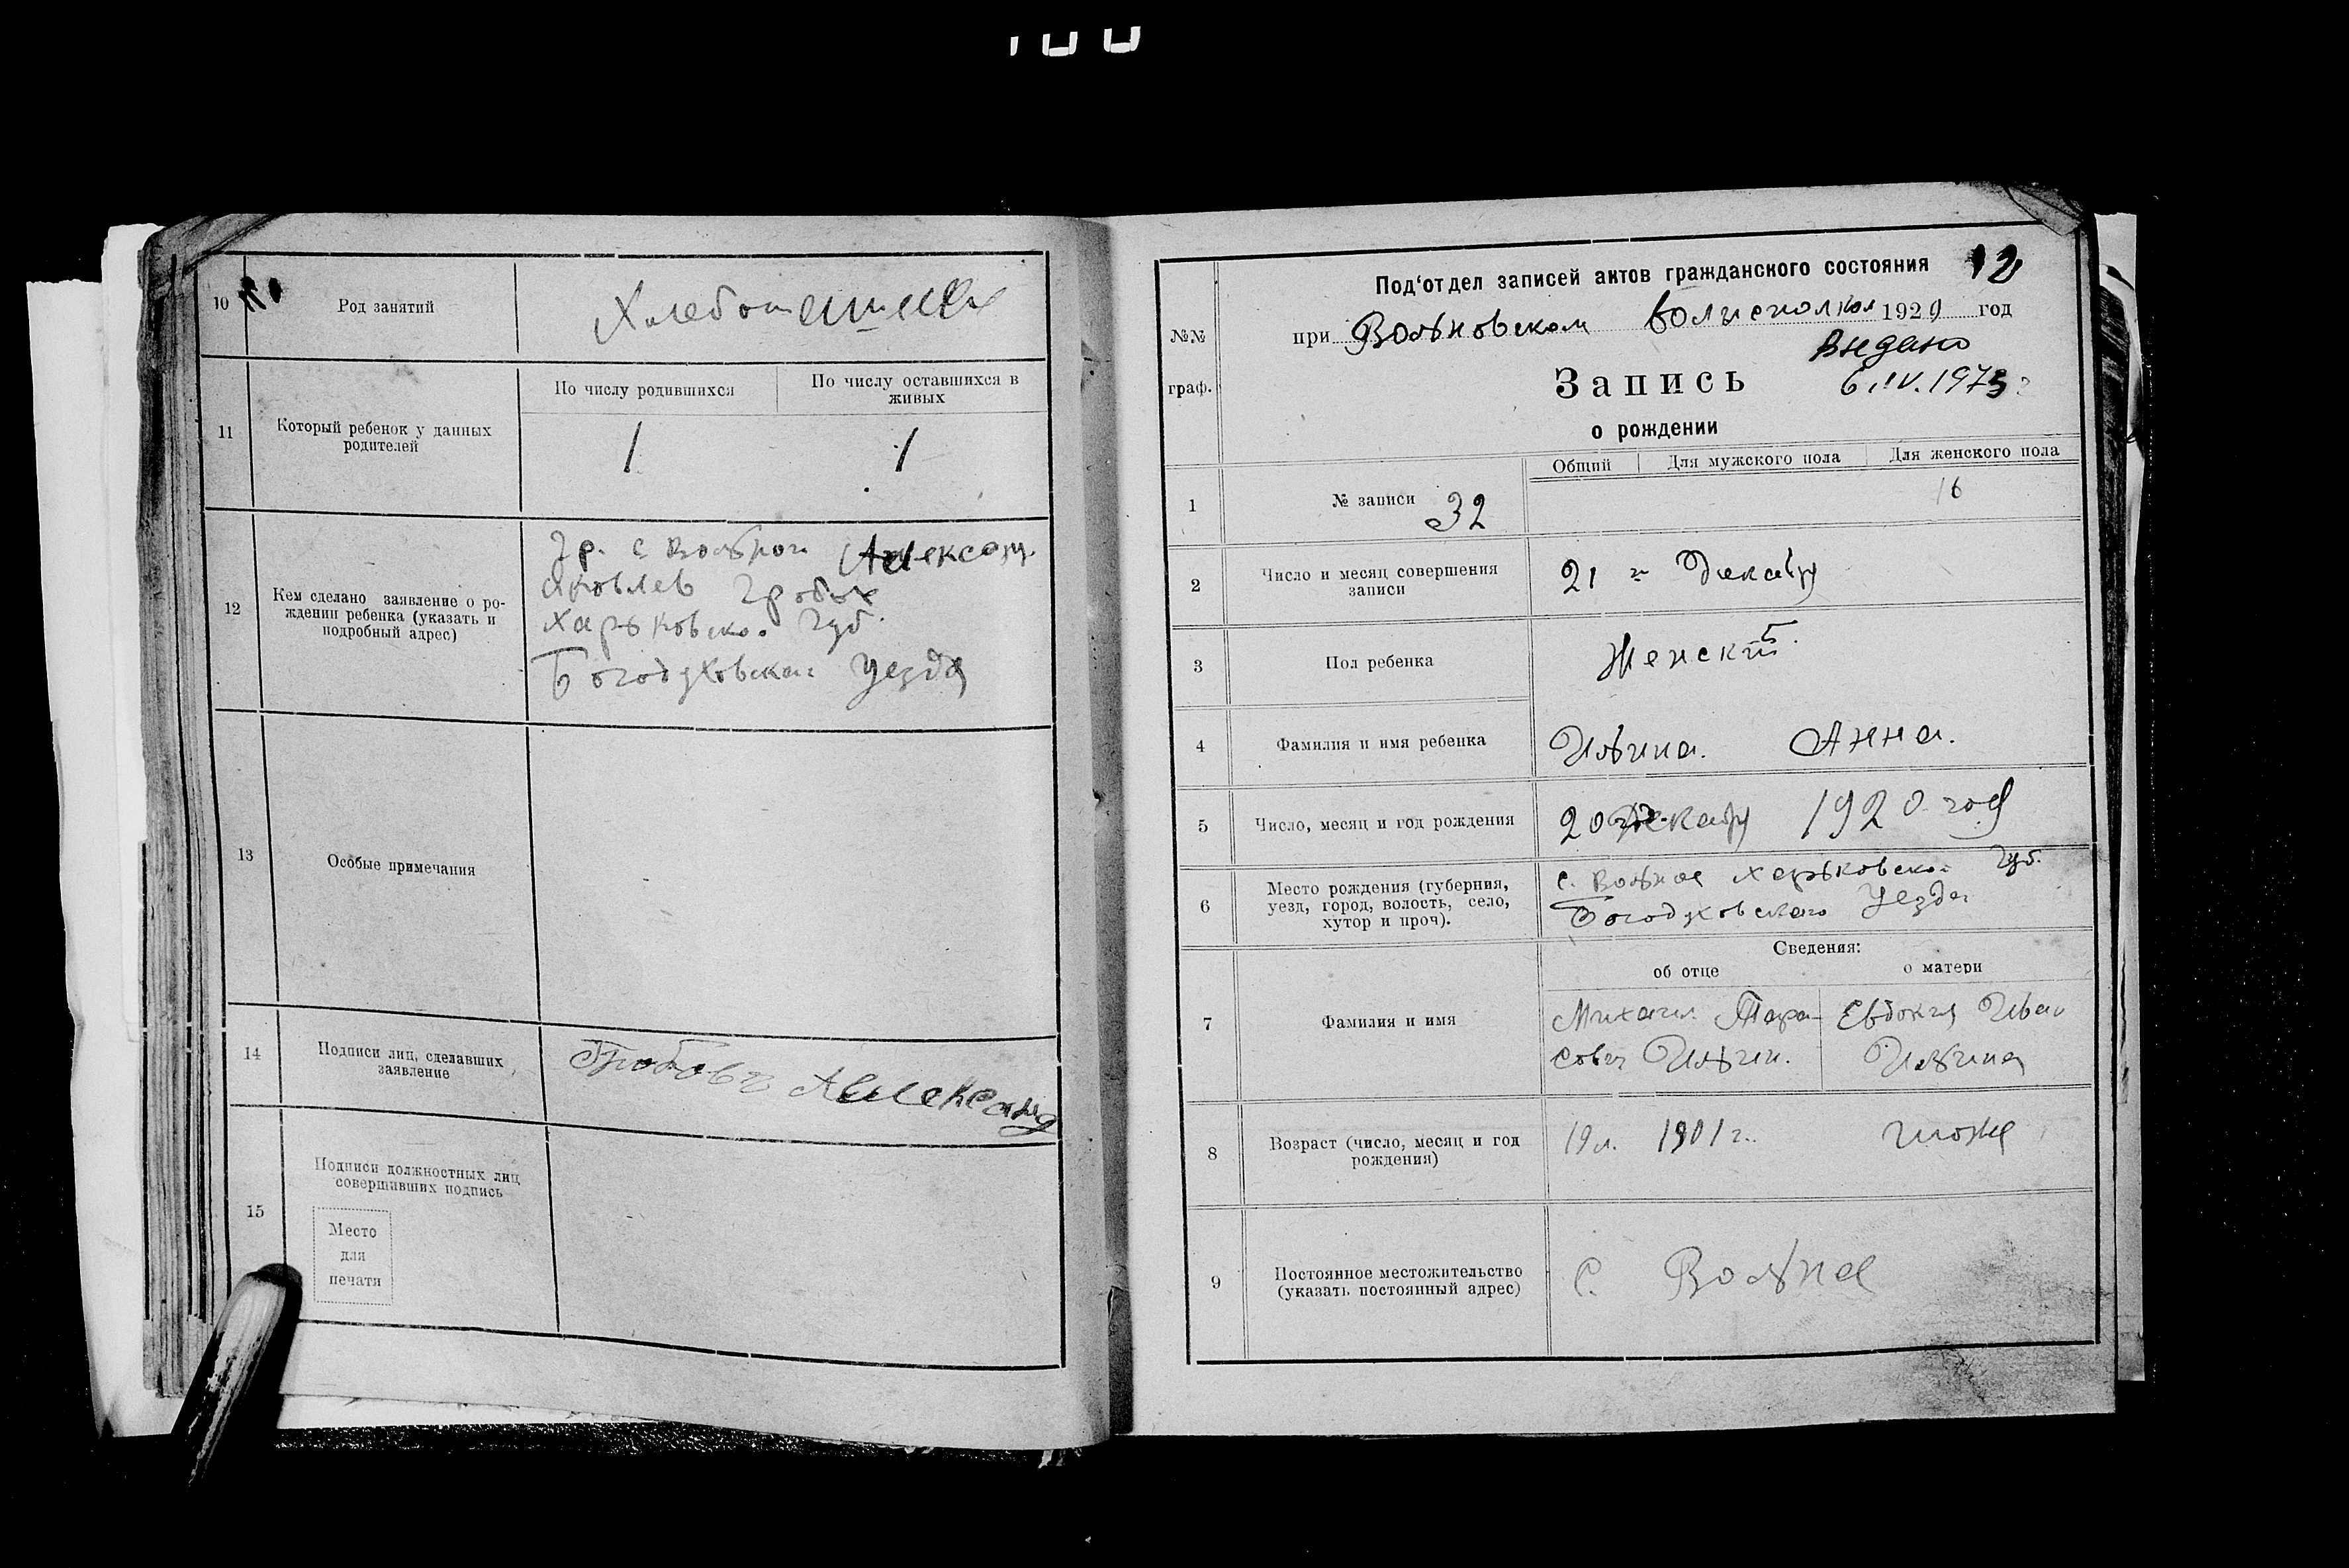 100
10
Род занятий
11
Который ребенок у данных
родителей
По числу родившихся
По числу оставшихся в
живых
1
1
12
Кем сделано заявление о ро-
ждении ребенка (указать и
подробный адрес)
гр. с Вольной Александ.
Яковлев Гробов
Харьковско. Губ.
Богодуховскаго уезда
13
Особые примечания
14
Подписи лиц, сделавших
заявление
15
Подписи должностных лиц
совершивших подпись
Место
для
печати
12
Под'отдел записей актов гражданского состояния
№№
граф.
при Вольновском 1920 год
6.IV.1975
Запись
о рождении
Общий
Для мужского пола
Для женского пола
1
№ записи 32
16
2
Число и месяц совершения
записи
21 Декабр
3
Пол ребенка
Женский
4
Фамилия и имя ребенка
Ильина. Анна.
5
Число, месяц и год рождения
20 Декабр 1920 год
6
Место рождения (губерния,
уезд, город, волость, село,
хутор и проч).
с. Вольное Харьковской Губ.
Богодуховскаго Уезда
Сведения:
об отце
о матери
7
Фамилия и имя
Михаил Тара-
сович Ильин.
Евдокия Иван
Ильина
8
Возраст (число, месяц и год
рождения)
19 л. 1901 г.
тоже
9
Постоянное местожительство
(указать постоянный адрес)
С. Вольное